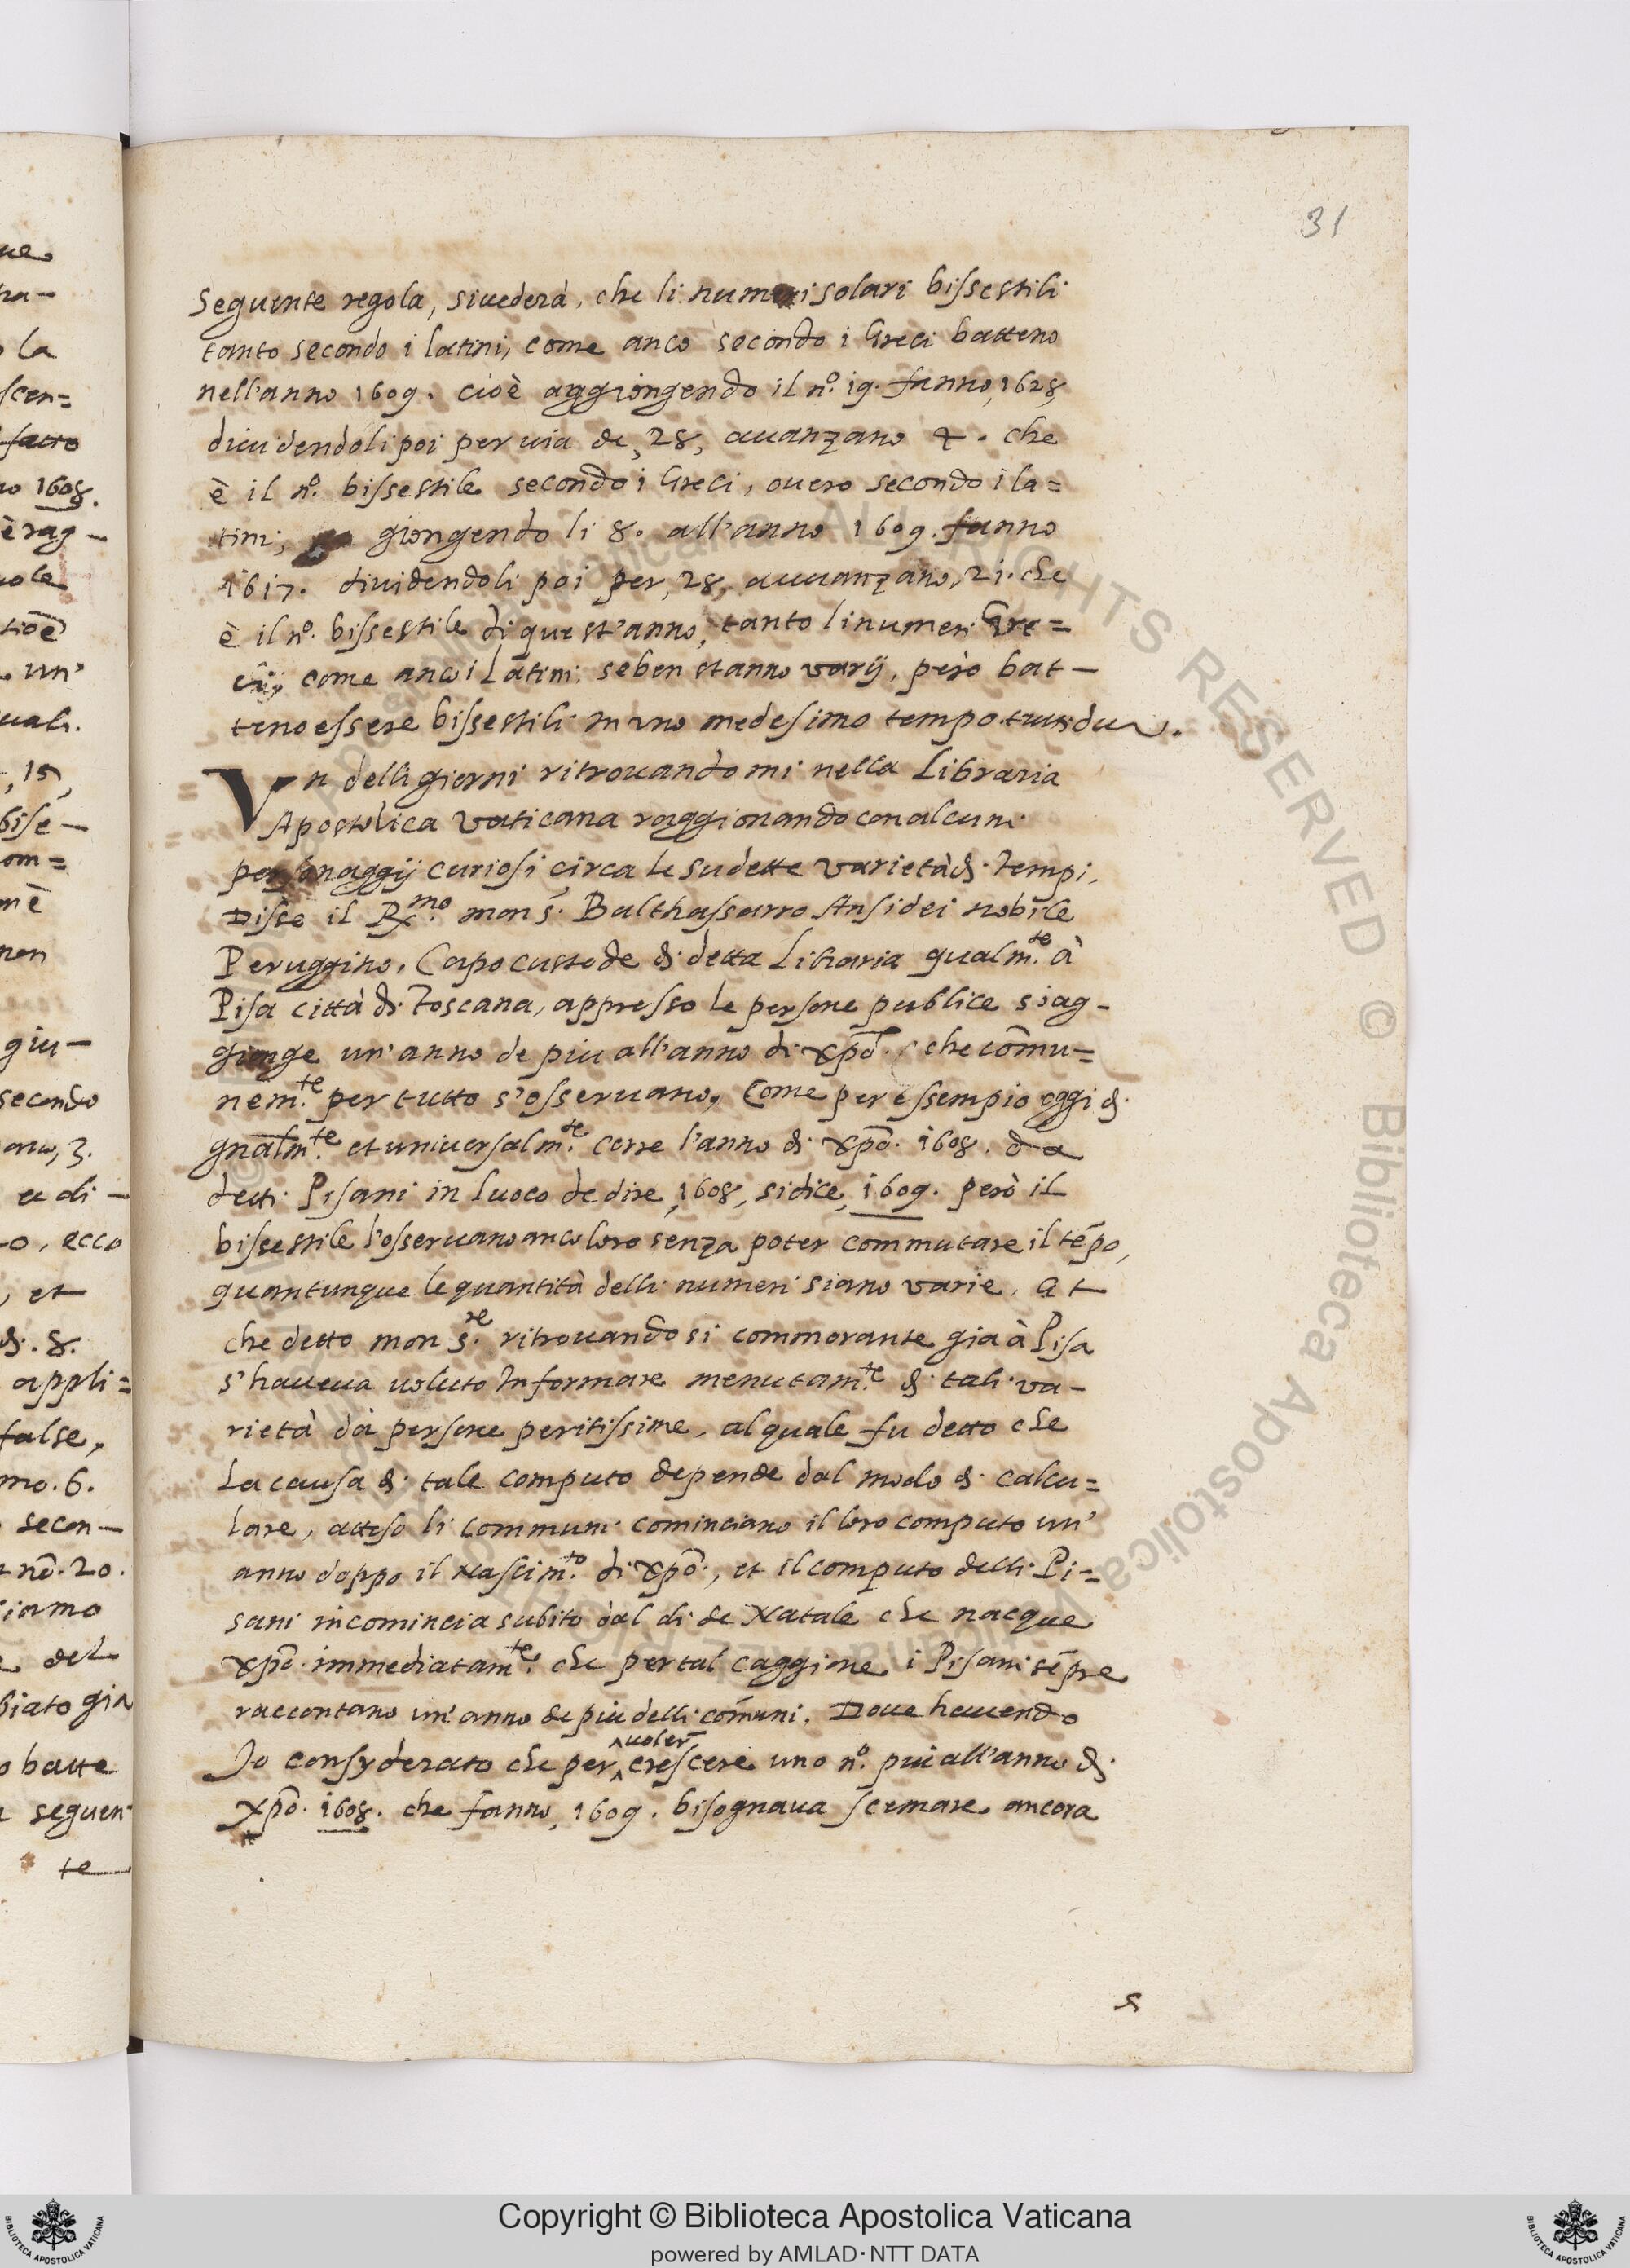 31
seguente regola, si uederà, che li numeri solari bissestili
tanto secondo i latini, come anco secondo i Greci batteno
nell'anno 1609. cioè aggiongendo il nº. 19. fanno, 1628,
diuidendoli poi per uia de, 28, auanzano 4. che
è il nº. bissestile secondo i Greci, ouero secondo i la=
tini, giongendo li 8. all'anno 1609. fanno
1617. diuidendoli poi per, 28, auuanzano, 21. che
è il nº. bissestile di quest'anno, tanto li numeri Gre=
cij come anco i Latini: seben stanno varij, però bat-
teno essere bissestili in uno medesimo tempo tutti dua.
Vn delli giorni ritrouandomi nella Libraria
Apostolica Vaticana raggionando con alcuni
personaggij curiosi circa le sudette varietà di Tempi,
Disse il Rmo. mon s. Balthassarro Ansidei nobile
Peruggino, Capo custode di detta Libraria qualm.te à
Pisa città di Toscana, appresso le persone publice s'ag-
gionge un'anno de piu all'anno di xpō. che cōmu=
nem.te per tutto s'osseruano, Come per essempio oggi di
gnalm.te et uniuersalm.te corre l'anno di xpō. 1608. da
detti Pisani in luoco de dire, 1608, si dice, 1609. però il
bissestile l'osseruano anco loro senza poter commutare il tēpo,
quantunque le quantità delli numeri siano varie. Et
che detto mon s.re ritrouandosi commorante gia à Pisa
s'haueua uoluto Informare menutam.te di tali va-
rietà da persone peritissime, al quale fu detto che
La causa di tale computo depende dal modo di calcu=
lare, atteso li communi cominciano il loro computo un'
anno doppo il Nascim.to di xpō., et il computo delli Pi=
sani incomincia subito dal di de Natale che nacque
xpō. immediatam.te. che per tal caggione i Pisani sēpre
raccontano un'anno de piu delli cōmuni. Doue hauendo
uoler
Io consyderato che per crescere uno nº. piu all'anno di
xpō. 1608. che fanno, 1609. bisognaua scemare ancora
la
scen=
fatto
no 1608.
è rag-
uole
tioē
un'
uali.
, 15,
bise-
om=
mè
non
giu-
secondo
ano, 3.
a di-
-o, ecco
, et
di. 8.
appli=
false,
mo. 6.
secon-
nō. 20.
iamo
del
biato gia
o batte
seguen
te
ALL RIGHTS RESERVED © Biblioteca Apostolica Vaticana
Copyright © Biblioteca Apostolica Vaticana
powered by AMLAD·NTT DATA
BIBLIOTECA APOSTOLICA VATICANA
BIBLIOTECA APOSTOLICA VATICANA